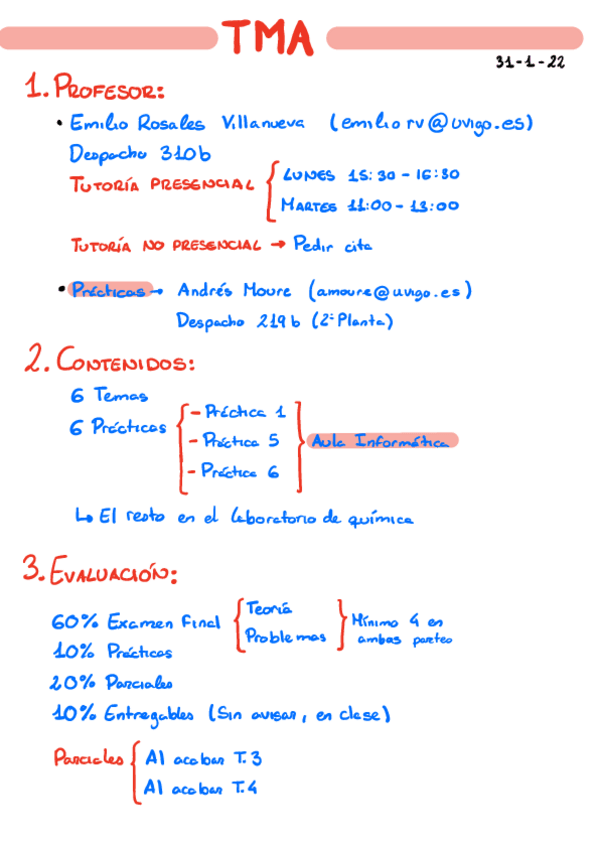 TMA
31-1-22
1. PROFESOR:
• Emilio Rosales Villanueva (emiliorv@uvigo.es)
Despacho 310b
TUTORÍA PRESENCIAL { LUNES 15:30 - 16:30
MARTES 11:00 - 13:00
TUTORÍA NO PRESENCIAL → Pedir cita
• Prácticas → Andrés Moure (amoure@uvigo.es)
Despacho 219b (2ª Planta)
2. CONTENIDOS:
6 Temas
6 Prácticas { - Práctica 1
- Práctica 5 } Aula Informática
- Práctica 6
↳ El resto en el laboratorio de química
3. EVALUACIÓN:
60% Examen Final { Teoría } Mínimo 4 en
Problemas ambas partes
10% Prácticas
20% Parciales
10% Entregables (Sin avisar, en clase)
Parciales { Al acabar T.3
Al acabar T.4